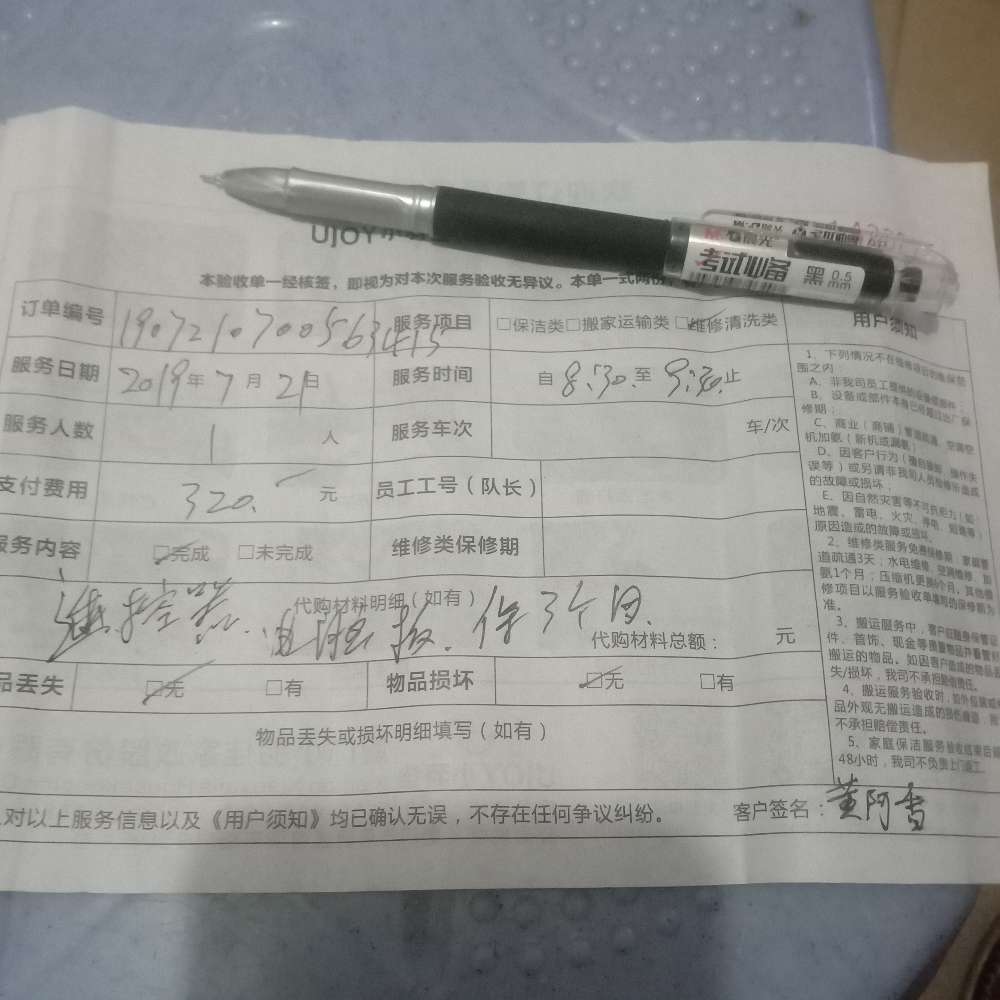 UJOY
本验收单一经核签，即视为对本次服务验收无异议。本单一式两份，
M&G 晨光 考试必备 黑 0.5 mm
订单编号 1907210700563415 服务项目 □保洁类□搬家运输类☑维修清洗类
服务日期 2019年7月21日 服务时间 自8:30.至9:30.止
服务人数 1 人 服务车次 车/次
支付费用 320. 元 员工工号（队长）
服务内容 ☑完成 □未完成 维修类保修期
代购材料明细（如有）
控器. 电 板. 保3个月.
代购材料总额： 元
品丢失 ☑无 □有 物品损坏 ☑无 □有
物品丢失或损坏明细填写（如有）
对以上服务信息以及《用户须知》均已确认无误，不存在任何争议纠纷。 客户签名：黄阿香
用户须知
1、下列情况不在
围之内：
A、非我司员工
B、设备或部件本身已经超过出厂保
修期；
C、商业（商铺）管道疏通、空调空
机加氨（新机或漏氨）
D、因客户行为（擅自拆卸、操作失
误等）或另请非我司人员维修所造成
的故障或损坏；
E、因自然灾害等不可抗拒力（如
地震、雷电、火灾、停电、短路等）
原因造成的故障或损坏。
2、维修类服务免费保修期：家庭管
道疏通3天；水电维修、空调维修、加
氨1个月；压缩机更换6个月，其他维
修项目以服务验收单填写的保修期为
准。
3、搬运服务中，客户应随身保管证
件、首饰、现金等贵重物品并看管
搬运的物品。如因客户造成的物品丢
失/损坏，我司不承担赔偿责任。
4、搬运服务验收时，如外包装或
品外观无搬运造成的损伤痕迹，
不承担赔偿责任。
5、家庭保洁服务验收结束后超
48小时，我司不负责上门返工。